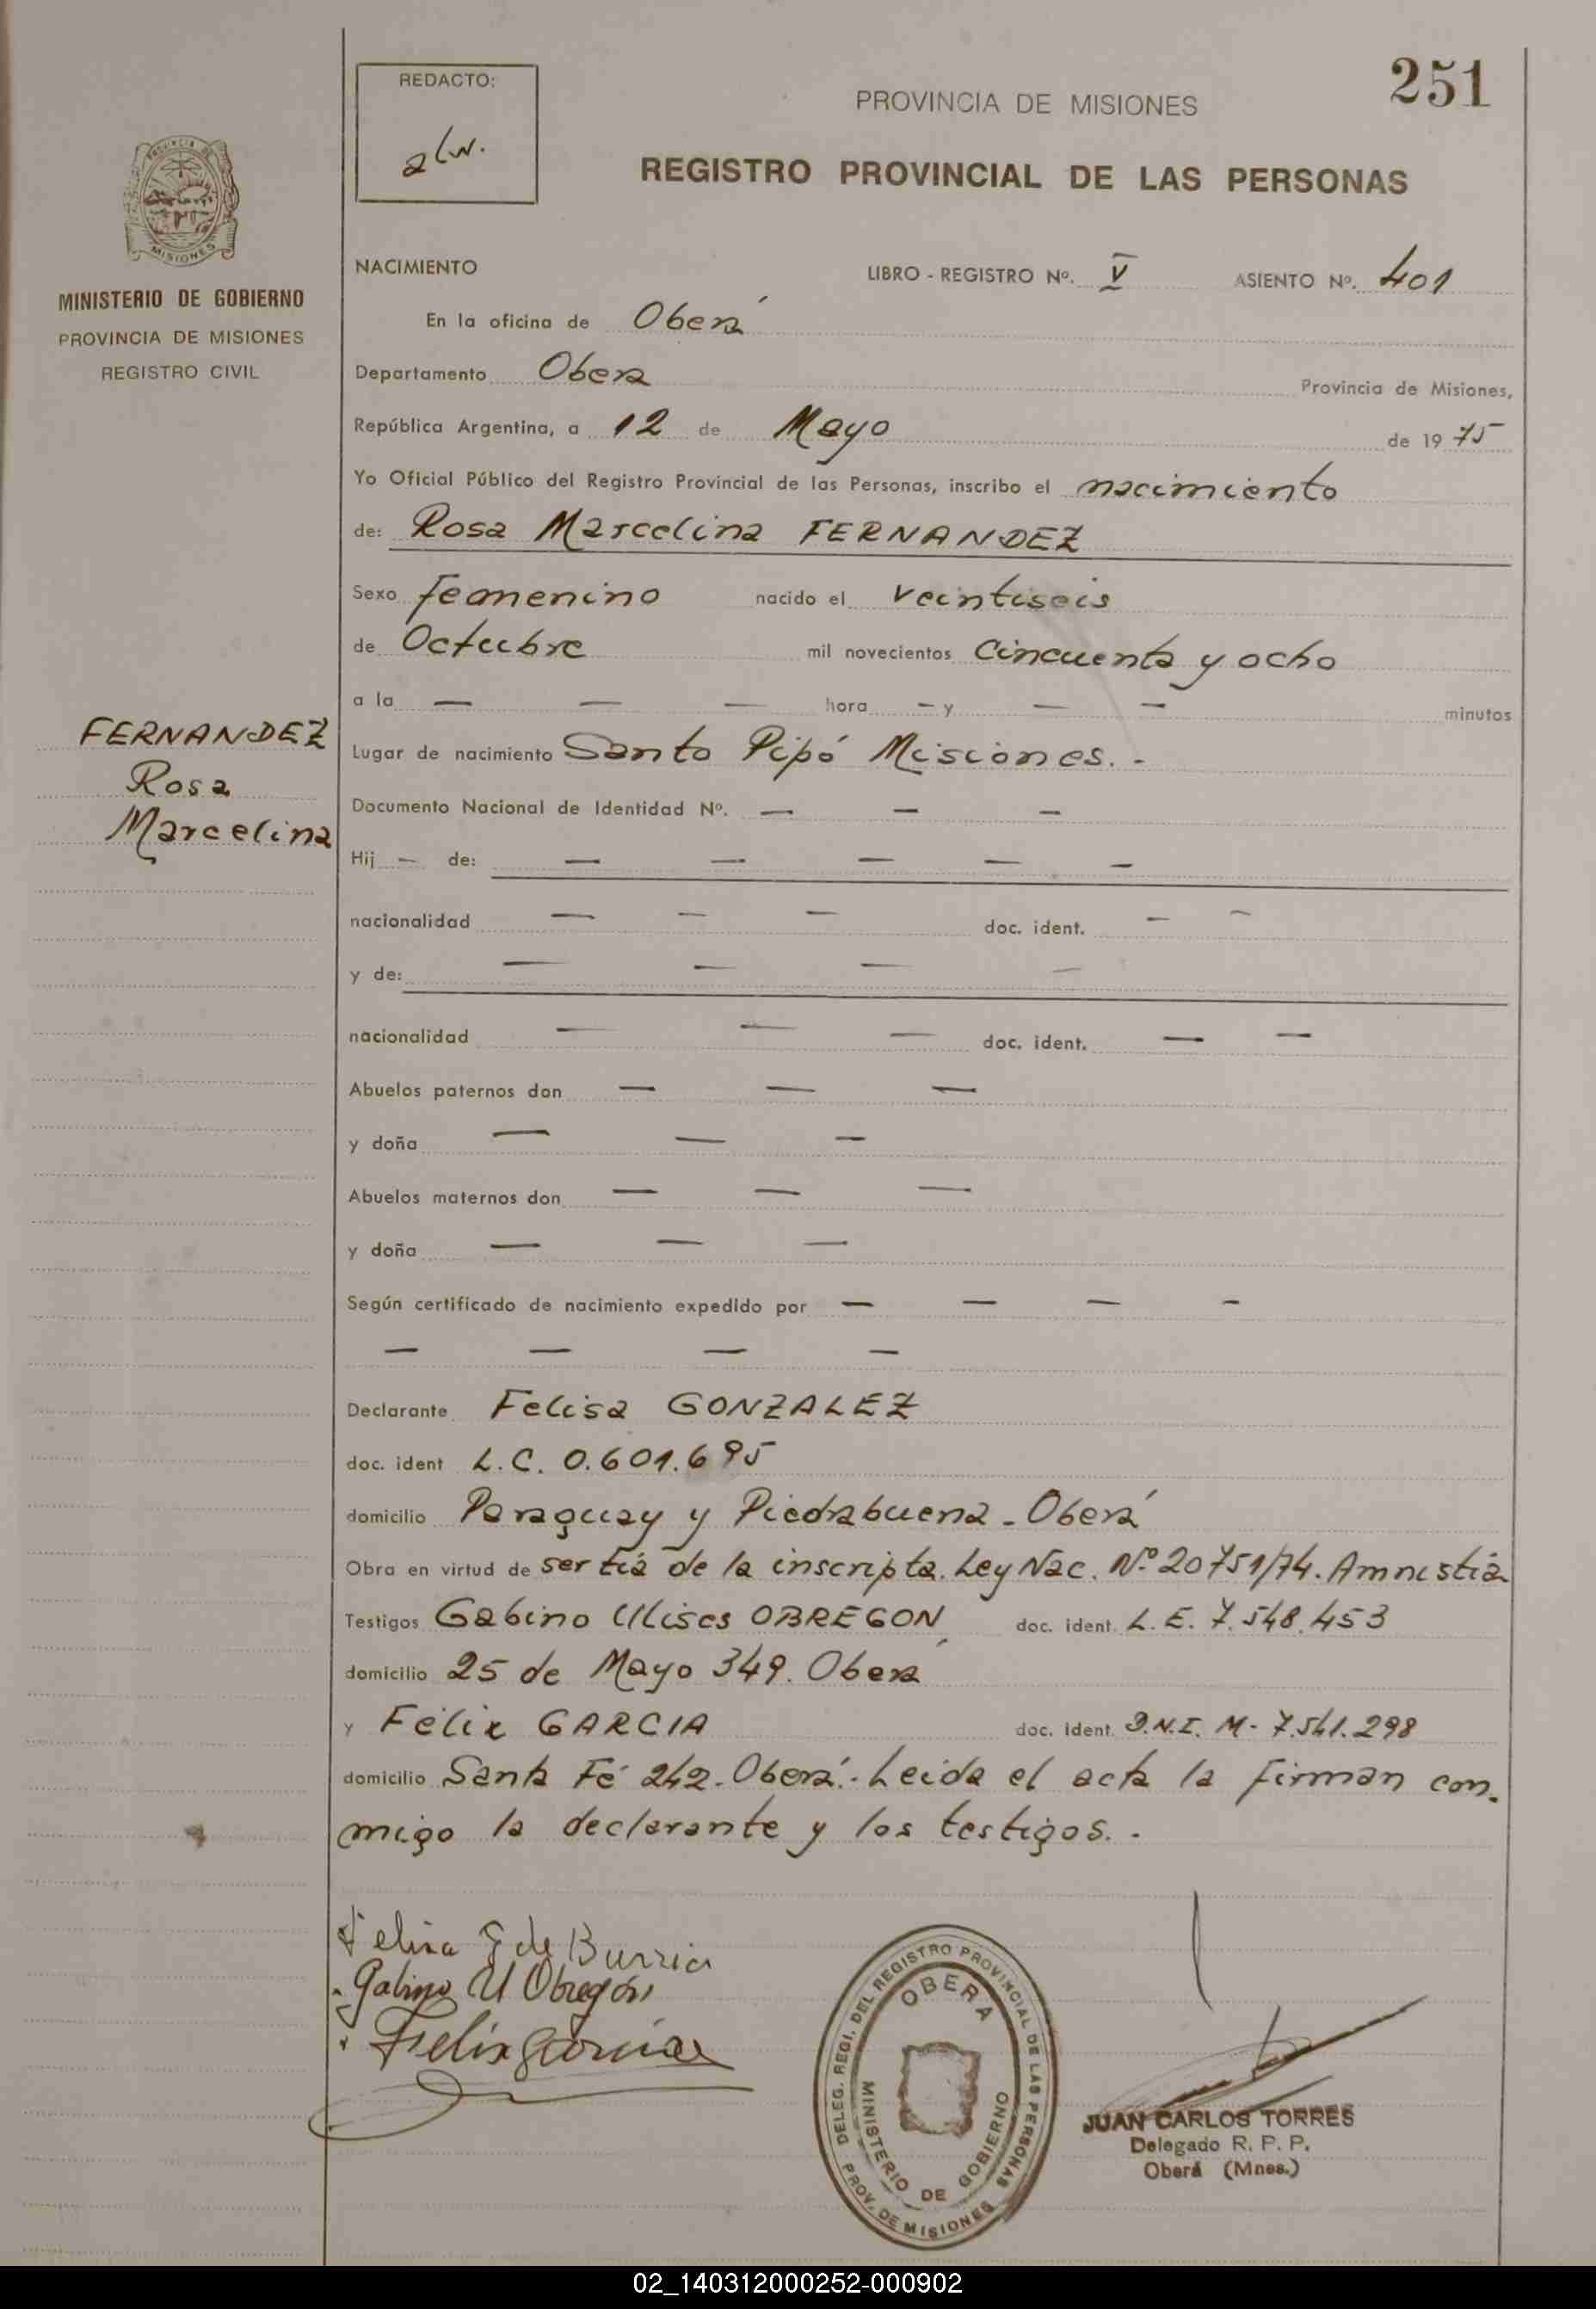 251
REDACTO:
alw.
PROVINCIA DE MISIONES
REGISTRO PROVINCIAL DE LAS PERSONAS
MISIONES
MINISTERIO DE GOBIERNO
PROVINCIA DE MISIONES
REGISTRO CIVIL
NACIMIENTO LIBRO - REGISTRO Nº. V ASIENTO Nº. 401
En la oficina de Oberá
Departamento Obera Provincia de Misiones,
República Argentina, a 12 de Mayo de 1975
Yo Oficial Público del Registro Provincial de las Personas, inscribo el nacimiento
de: Rosa Marcelina FERNANDEZ
Sexo femenino nacido el veintiseis
de Octubre mil novecientos cincuenta y ocho
a la — — — hora — y — — minutos
FERNANDEZ
Rosa
Marcelina
Lugar de nacimiento Santo Pipó Misiones. -
Documento Nacional de Identidad Nº. — — —
Hij — de: — — — — —
nacionalidad — — — doc. ident. — —
y de: — — — —
nacionalidad — — — doc. ident. — —
Abuelos paternos don — — —
y doña — — —
Abuelos maternos don — — —
y doña — — —
Según certificado de nacimiento expedido por — — — —
— — — —
Declarante Felisa GONZALEZ
doc. ident L.C. 0.601.695
domicilio Paraguay y Piedrabuena - Oberá
Obra en virtud de ser tía de la inscripta. Ley Nac. Nº 20751/74. Amnistía
Testigos Gabino Ulises OBREGON, doc. ident. L.E. 7.548.453
domicilio 25 de Mayo 349. Oberá
y Félix GARCIA doc. ident. D.N.I. M- 7.541.298
domicilio Santa Fé 242 - Oberá. - Leida el acta la firman con-
migo la declarante y los testigos. -
Felisa G de Burria
Gabino U Obregón
Felix Garcia
DELEG. REGI. DEL REGISTRO PROVINCIAL DE LAS PERSONAS
OBERA
MINISTERIO DE GOBIERNO
PROV. DE MISIONES
JUAN CARLOS TORRES
Delegado R. P. P.
Oberá (Mnes.)
02_140312000252-000902